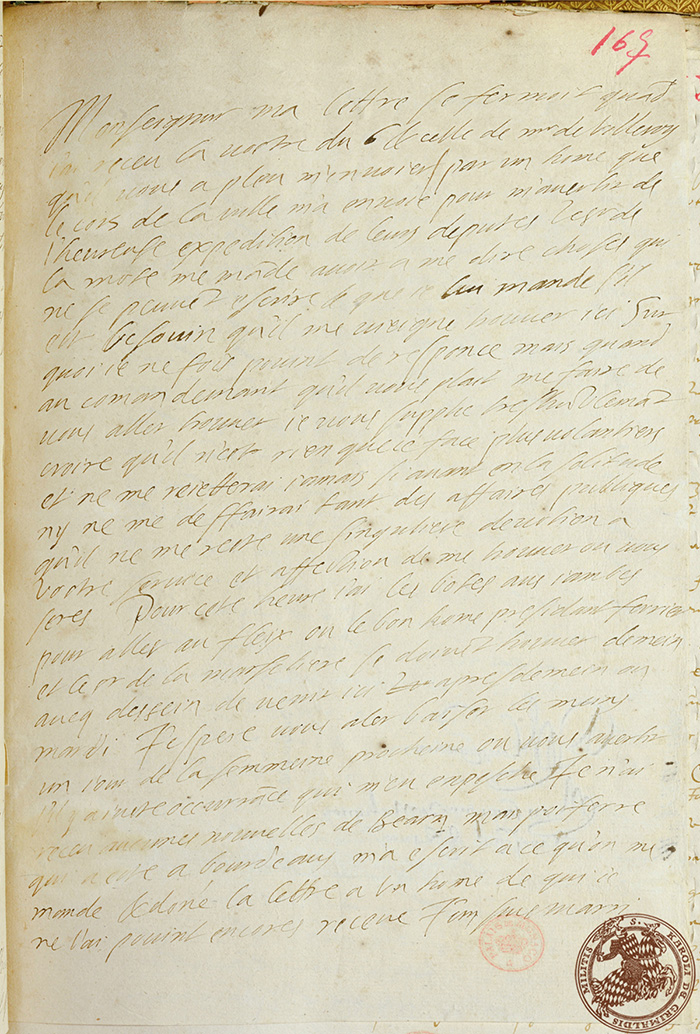 165
Monseigneur ma lettre se fermoit quãd
i'ai receu la vostre du 6 & celle de mr de villeroy
qu'il vous a pleu m'envoier par un home que
le cors de la ville m'a envoié pour m'avertir de
l'heureuse expedition de leurs deputes Le sr de
la mote me mãde avoir a me dire choses qui
ne se peuvẽt escrire & que ie lui mande s'il
est besouin qu'il me vieigne trouver ici Sur
quoi ie ne fois pouint de responce mais quand
au comandemant qu'il vous plait me faire de
vous aller trouver ie vous supplie tres hũblemãt
croire qu'il n'est rien que ie face plus volantiers
et ne me reietterai iamais si avant en la solitude
ny ne me deffairai tant des affaires publiques
qu'il ne me reste une singuliere devotion a
vostre service et affection de me trouver ou vous
seres Pour cete heure i'ai les botes aus iambes
pour aller au fleix ou le bon home presidant ferrier
et le sr de la marseliere se doivẽt trouver demein
aveq dessein de venir ici apresdemein ou
mardi I'espere vous aler baiser les meins
un iour de la semmeine procheine ou vous avertir
s'il y a iuste occurrãce qui m'en enpesche Ie n'ai
receu aucunes nouvelles de bearn mais poiferre
qui a esté a bourdeaus m'a escrit & a ce qu'on me
mande & doné la lettre a un home de qui ie
ne l'ai pouint encores receue I'en suis marri
S. KAROLI DE GRIMALDIS MILITIS